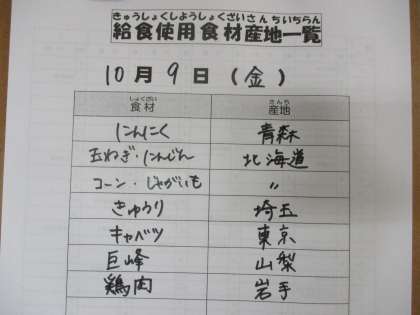 きゅうしょくしようしょくざいさんちいちらん
給食使用食材産地一覧
10月9日(金)
しょくざい さんち
食材 産地
にんにく 青森
玉ねぎ・にんじん 北海道
コーン・じゃがいも 〃
きゅうり 埼玉
キャベツ 東京
巨峰 山梨
鶏肉 岩手